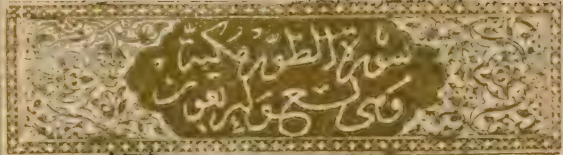 سورة الطور مكية
وهى تسع واربعون